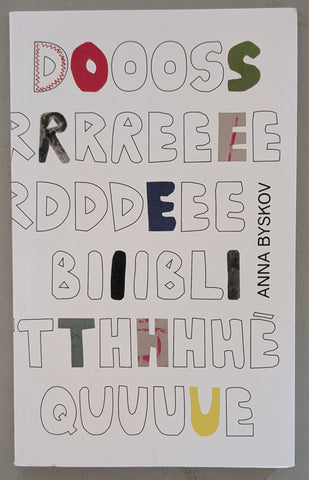 DOOOSS
RRRREEEE
RDDDEEE
BIIIBLI
TTHHHHÈ
QUUUUUE
ANNA BYSKOV